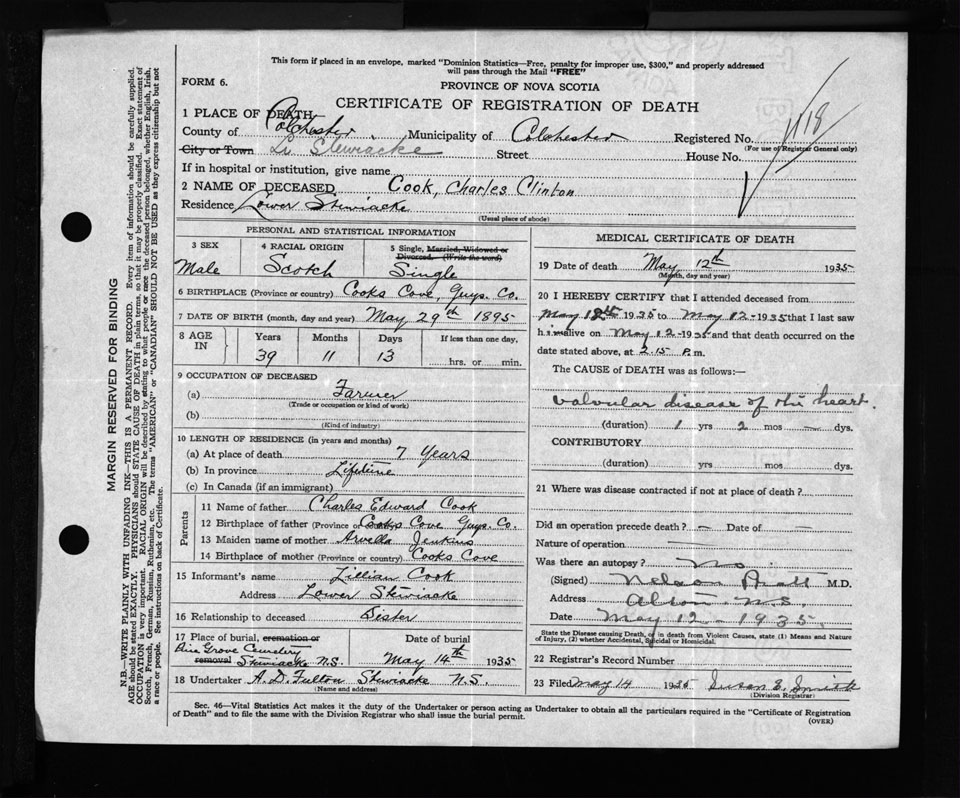 This form if placed in an envelope, marked "Dominion Statistics—Free, penalty for improper use, $300," and properly addressed
will pass through the Mail "FREE"
FORM 6.
PROVINCE OF NOVA SCOTIA
CERTIFICATE OF REGISTRATION OF DEATH
1 PLACE OF DEATH
County of Colchester Municipality of Colchester Registered No. 1118
(For use of Registrar General only)
City or Town Lr Stewiacke Street House No.
If in hospital or institution, give name
2 NAME OF DECEASED Cook, Charles Clinton
Residence Lower Stewiacke
(Usual place of abode)
PERSONAL AND STATISTICAL INFORMATION
3 SEX 4 RACIAL ORIGIN 5 Single, Married, Widowed or Divorced. (Write the word)
Male Scotch Single
6 BIRTHPLACE (Province or country) Cooks Cove, Guys. Co.
7 DATE OF BIRTH (month, day and year) May 29th 1895
8 AGE IN Years Months Days If less than one day,
39 11 13 hrs. or min.
9 OCCUPATION OF DECEASED
(a) Farmer
(Trade or occupation or kind of work)
(b)
(Kind of industry)
10 LENGTH OF RESIDENCE (in years and months)
(a) At place of death 7 Years
(b) In province Lifetime
(c) In Canada (if an immigrant)
Parents
11 Name of father Charles Edward Cook
12 Birthplace of father (Province or Cooks Cove Guys. Co.
13 Maiden name of mother Arvella Jenkins
14 Birthplace of mother (Province or country) Cooks Cove
15 Informant's name Lillian Cook
Address Lower Stewiacke
16 Relationship to deceased Sister
17 Place of burial, cremation or removal Date of burial
Pine Grove Cemetery
Stewiacke N.S. May 14th 1935
18 Undertaker A. D. Fulton Stewiacke N.S.
(Name and address)
MEDICAL CERTIFICATE OF DEATH
19 Date of death May 12th 1935
(Month, day and year)
20 I HEREBY CERTIFY that I attended deceased from
May 12th 1935 to May 12-1935 that I last saw
him alive on May 12-1935 and that death occurred on the
date stated above, at 2.15 P.m.
The CAUSE of DEATH was as follows:—
valvular disease of the heart.
(duration) 1 yrs 2 mos — dys.
CONTRIBUTORY
(duration) yrs. mos dys.
21 Where was disease contracted if not at place of death?
Did an operation precede death? — Date of —
Nature of operation —
Was there an autopsy? No.
(Signed) Nelson Pratt M.D.
Address Alton. N.S.
Date May 12 - 1935.
State the Disease causing Death, or in death from Violent Causes, state (1) Means and Nature
of Injury, (2) whether Accidental, Suicidal or Homicidal.
22 Registrar's Record Number
23 Filed May 14 1935 Susan E. Smith
(Division Registrar)
Sec. 46—Vital Statistics Act makes it the duty of the Undertaker or person acting as Undertaker to obtain all the particulars required in the "Certificate of Registration
of Death" and to file the same with the Division Registrar who shall issue the burial permit.
(OVER)
MARGIN RESERVED FOR BINDING
N.B.—WRITE PLAINLY WITH UNFADING INK—THIS IS A PERMANENT RECORD. Every item of information should be carefully supplied.
AGE should be stated EXACTLY. PHYSICIANS should STATE CAUSE OF DEATH in plain terms, so that it may be properly classified. Exact statement of
OCCUPATION is very important. RACIAL ORIGIN will be described by stating to what people or race the deceased person belonged, whether English, Irish,
Scotch, French, German, Russian, Ruthenian, etc. The terms "AMERICAN" or "CANADIAN" SHOULD NOT BE USED as they express citizenship but not
a race or people. See instructions on back of Certificate.